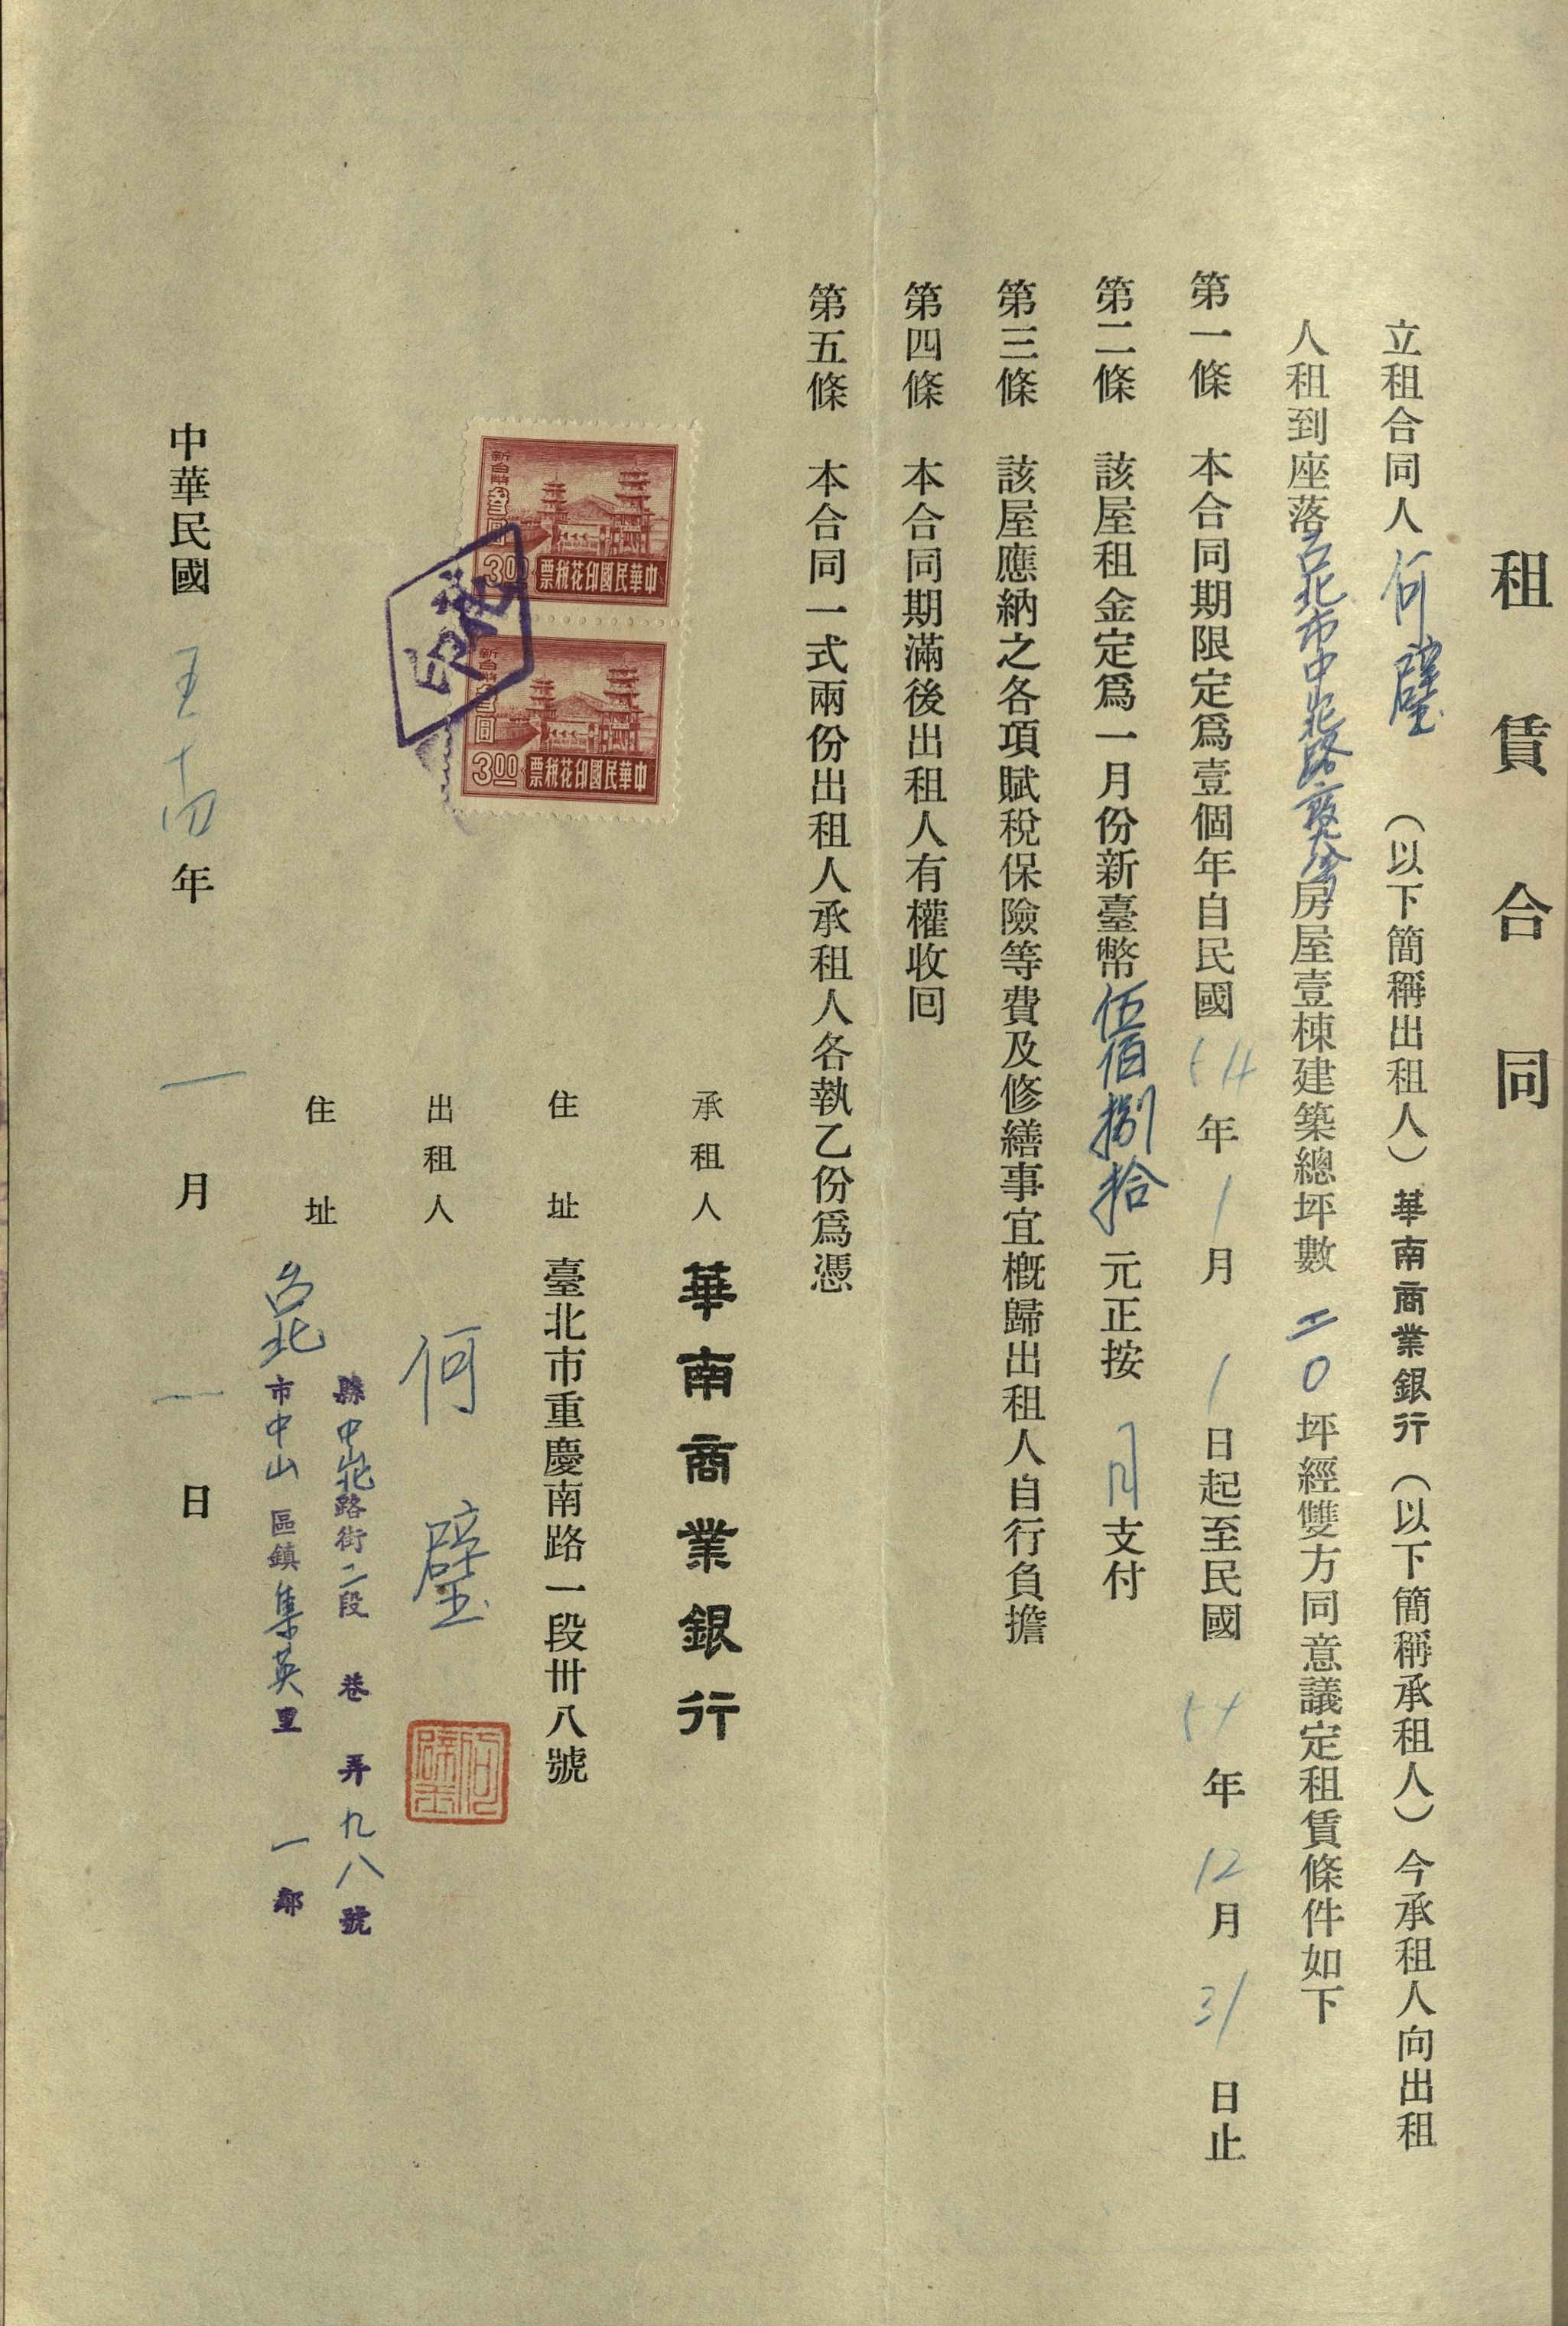 租賃合同
立租合同人何璧（以下簡稱出租人）華南商業銀行（以下簡稱承租人）今承租人向出租
人租到座落台北市中山北路房屋壹棟建築總坪數二0坪經雙方同意議定租賃條件如下
第一條 本合同期限定爲壹個年自民國54年1月1日起至民國54年12月31日止
第二條 該屋租金定爲一月份新臺幣伍佰捌拾元正按月支付
第三條 該屋應納之各項賦稅保險等費及修繕事宜槪歸出租人自行負擔
第四條 本合同期滿後出租人有權收回
第五條 本合同一式兩份出租人承租人各執乙份爲憑
承租人 華南商業銀行
住址 臺北市重慶南路一段卅八號
出租人 何璧
何璧
住址 台北縣市中山區鎮集英里一鄰
中山北路街二段 巷 弄九八號
中華民國五十四年一月一日
新台幣叁圓
3.00
中華民國印花稅票
新台幣叁圓
3.00
中華民國印花稅票